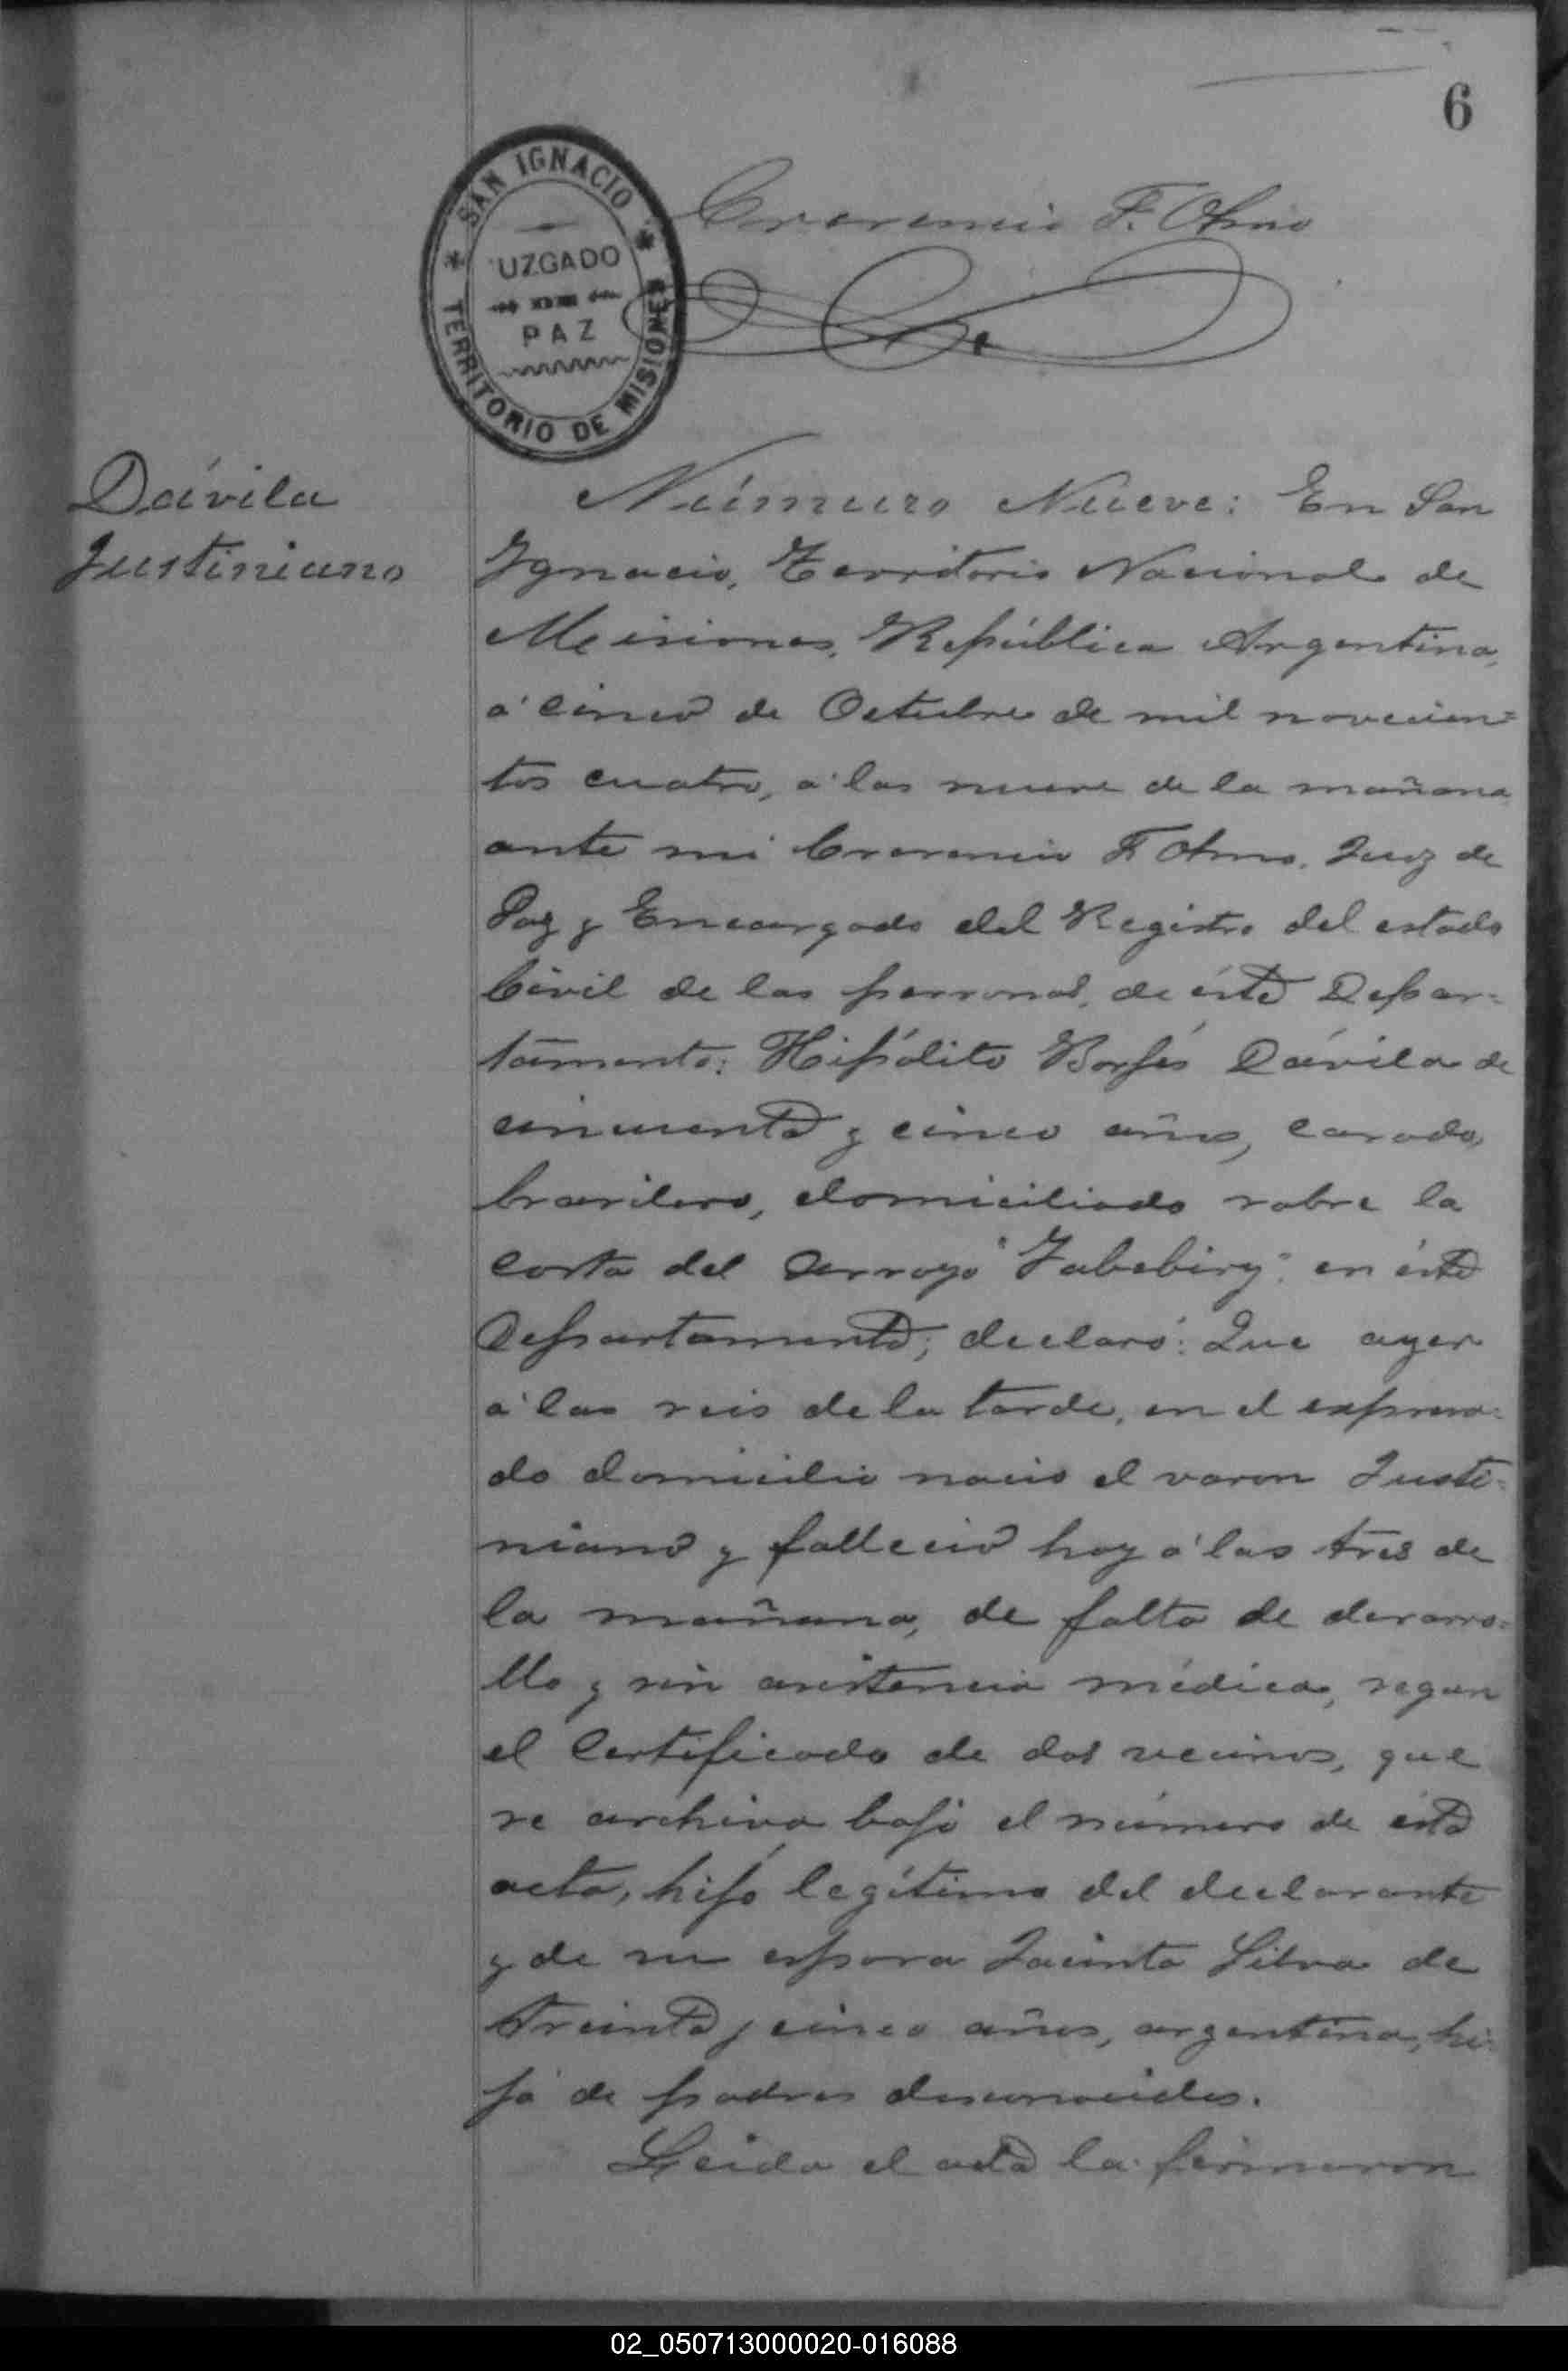 6
SAN IGNACIO
UZGADO
PAZ
TERRITORIO DE MISIONES
F. Olmo
Dávila
Justiniano
Número Nueve: En San
Ignacio, Territorio Nacional de
Misiones, República Argentina,
á cinco de Octubre de mil novecien=
tos cuatro, á las nueve de la mañana
ante mi F. Olmo, Juez de
Paz y Encargado del Registro del estado
Civil de las personas, de éste Depar=
tamento: Hipólito Dávila de
cincuenta y cinco años, casado,
brasilero, domiciliado sobre la
costa del arroyo "Yabebiry" en éste
Departamento; declaró: Que ayer
á las seis de la tarde, en el expresa=
do domicilio nacio el varon Justi=
niano y fallecio hoy á las tres de
la mañana, de falta de desarro=
llo y sin asistencia médica, segun
el certificado de dos vecinos, que
se archiva bajo el número de esta
acta, hijo legítimo del declarante
y de su esposa Jacinta Silva de
treinta y cinco años, argentina, hi=
ja de padres desconocidos.
Leida el acta la firmaron
02_050713000020-016088